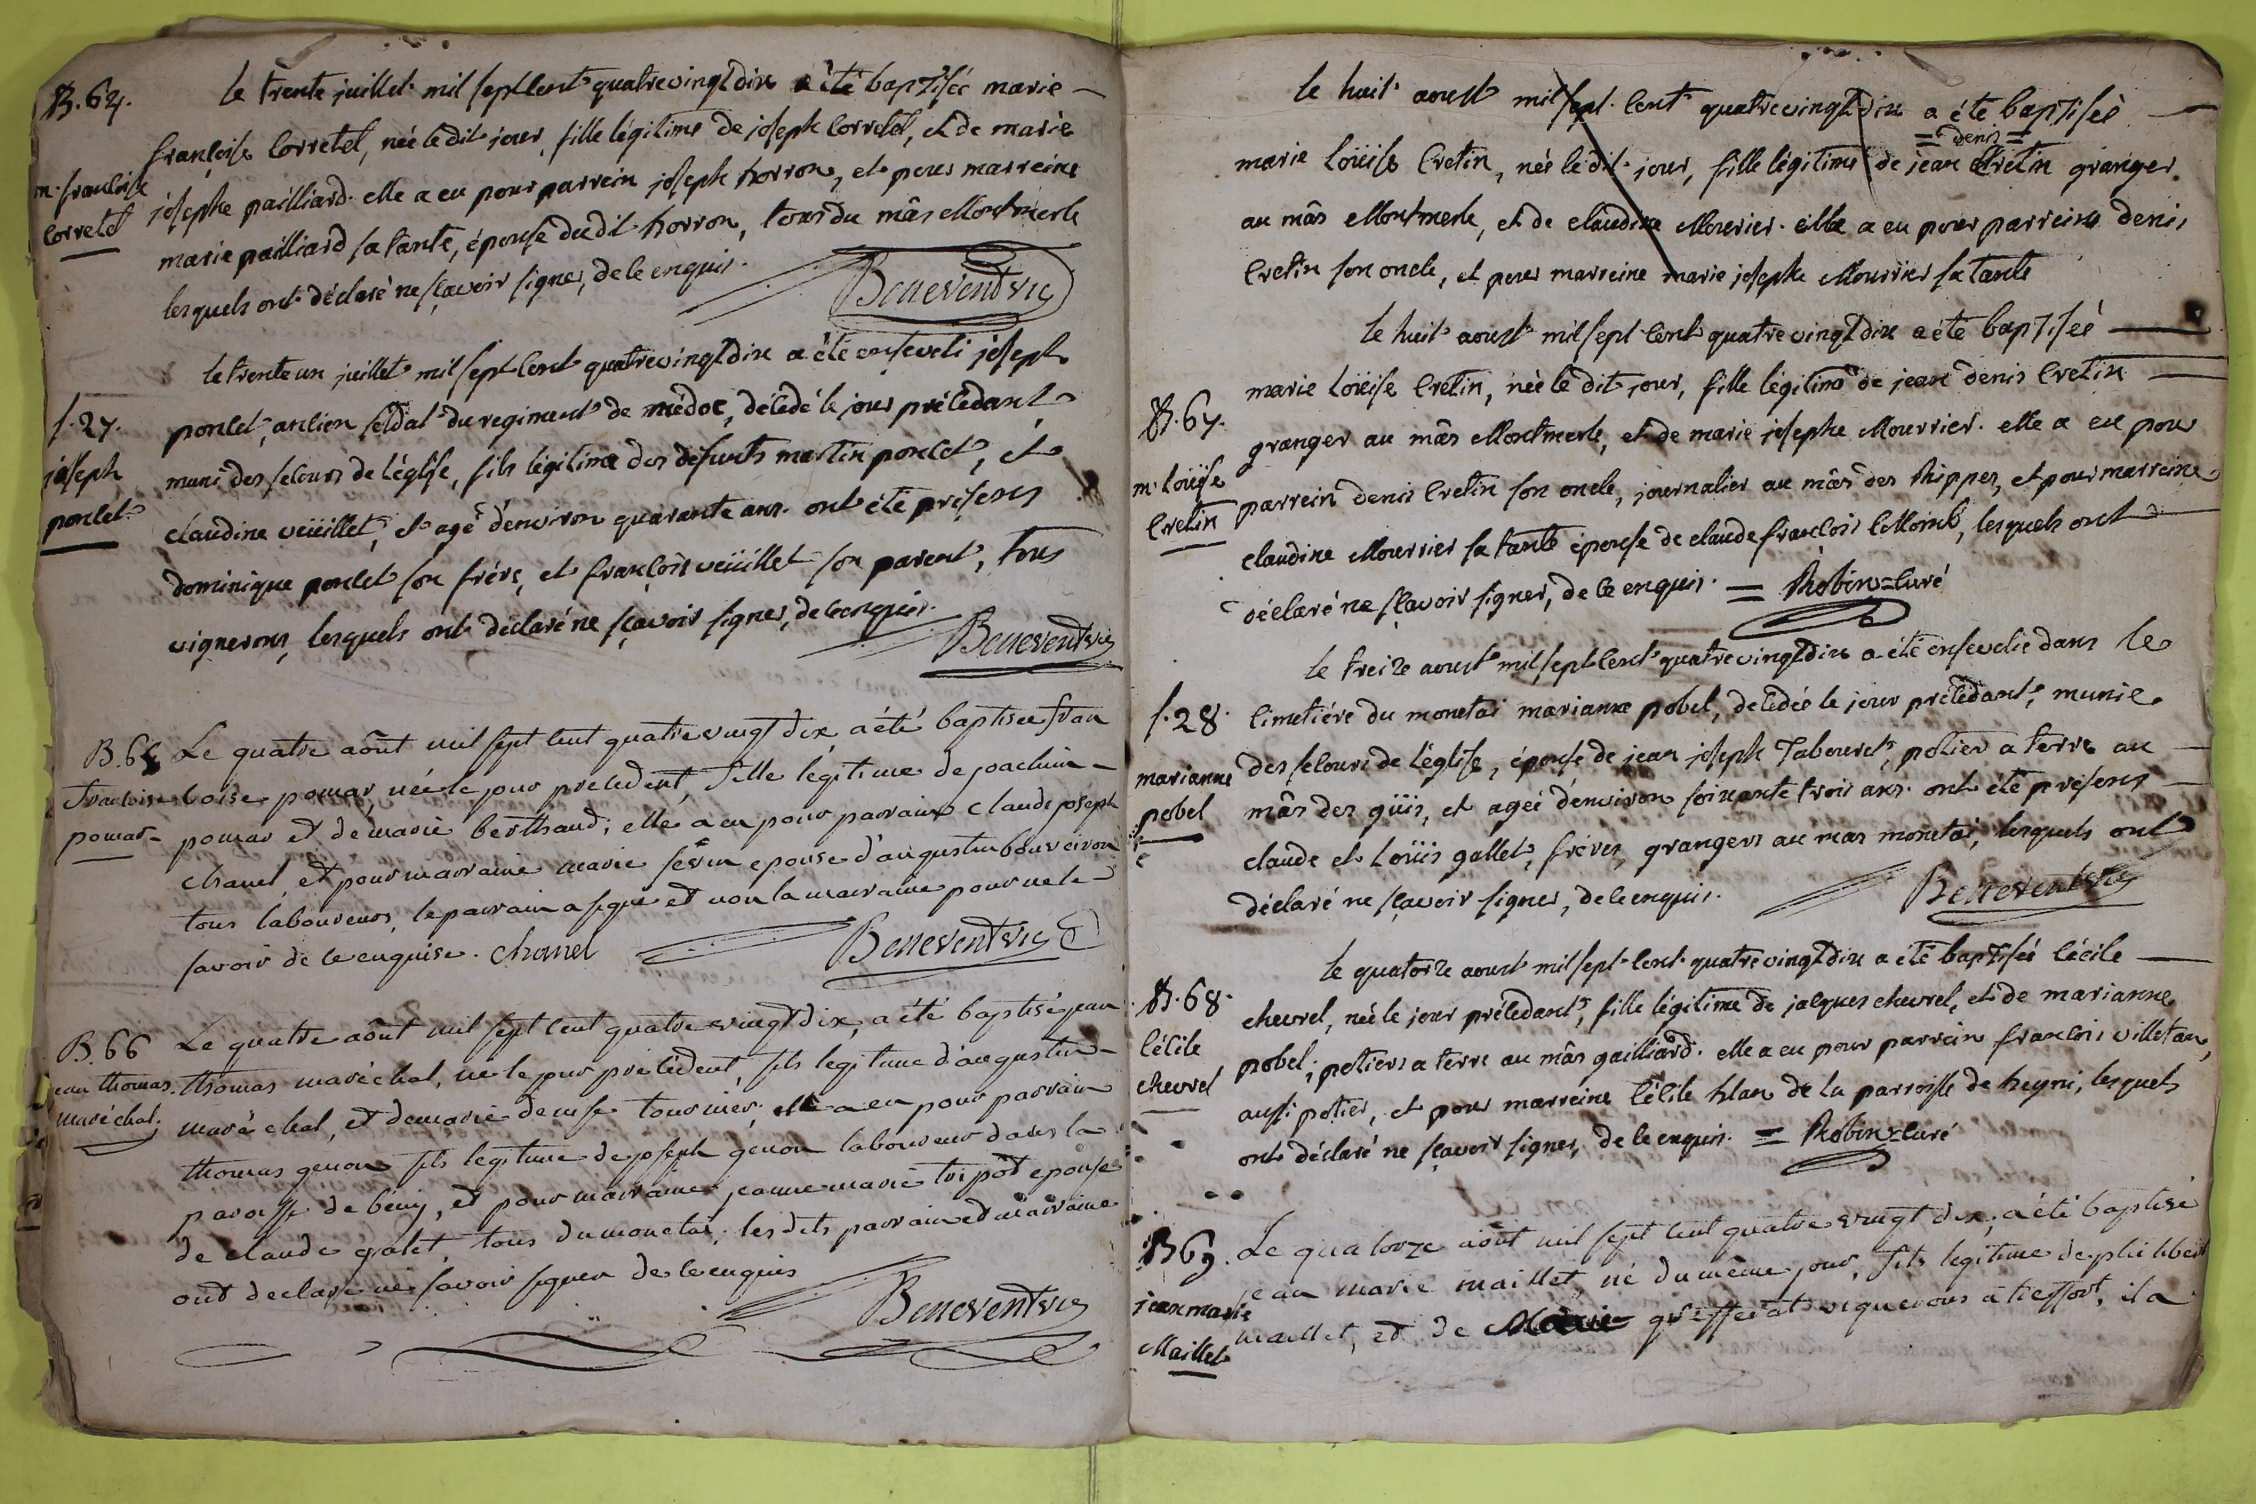 B. 64.
m. francoise
Corretet
le trente juillet mil sept cent quatrevingt dix a été baptisée marie
françoise Corretet, née le dit jour, fille légitime de joseph Corretet, et de marie
josephe pailliard. elle a eu pour parrein joseph horron, et pour marreine
marie pailliard sa tante, épouse dudit horron, tous du mâs Montmerle
lesquels ont déclaré ne sçavoir signer, de ce enquis.
Beneventvic
f. 27.
joseph
poncet
le trente un juillet mil sept cent quatrevingt dix a été enseveli joseph
poncet, ancien soldat du regiment de médoc, décédé le jour précédant,
muni des secours de l'église, fils légitime des défunts martin poncet, et
claudine veüillet, et agé d'environ quarante ans. ont été présens
dominique poncet son frére, et françois veüillet son parent, tous
vignerons, lesquels ont déclaré ne sçavoir signer, de ce enquis.
Beneventvic
B. 65
francoise
pomar
Le quatre aôut mil sept cent quatre vingt dix a été baptisée fran
coise pomar, née le jour precedent, fille légitime de joachim
pomar et de marie berthaud; elle a eu pour parrain Claude joseph
chanel, et pour marraine marie fevin epouse d'augustin bouveiron
tous laboureurs, le parrain a signé et non la marraine pour ne le
savoir de ce enquise. Chanel
Beneventvic
B. 66
jean thomas
maréchal.
Le quatre aôut mil sept cent quatre vingt dix, a été baptisé jean
thomas maréchal, né le jour précédent, fils legitime d'augustin
maréchal, et de marie denise tournier; elle a eu pour parrain
thomas genon fils legitime de joseph genon laboureur dans la
paroisse de bény, et pour marraine jeanne marie tripôt epouse
de claude galet, tous du monetai; les dits parrain et marraine
ont declaré ne savoir signer de ce enquis
Beneventvic
le huit aoust mil sept cent quatrevingt dix a été baptisée
= denis =
marie Loüise Cretin, née le dit jour, fille légitime de jean Cretin granger
au mâs Montmerle, et de claudine Mourier. elle a eu pour parrein denis
Cretin son oncle, et pour marreine marie josephe Mourrier sa tante
B. 67.
m. Loüise
Cretin
le huit aoust mil sept cent quatrevingt dix a été baptiseé
marie Loüise Cretin, née le dit jour, fille légitime de jean denis Cretin
granger au mâs Montmerle, et de marie josephe Mourrier. elle a eu pour
parrein denis Cretin son oncle, journalier au mâs des Rippes, et pour marreine
claudine Mourrier sa tante épouse de claude françois Moine, lesquels ont
déclaré ne sçavoir signer, de ce enquis. = Robin = curé
f. 28.
marianne
pobel
le treize aoust mil sept cent quatrevingt dix a été ensevelie dans le
cimetiére du monetai marianne pobel, décédée le jour précédant, munie
des secours de l'église, épouse de jean joseph Tabouret, potier a terre au
mâs des güis, et ageé d'environ soixante trois ans. ont été présens
claude et Loüis gallet, fréres, grangers au mas monetai, lesquels ont
déclaré ne sçavoir signer, de ce enquis.
Beneventvic
B. 68.
Cécile
chevrel
le quatorze aoust mil sept cent quatrevingt dix a été baptisée Cécile
chevrel, née le jour précédant, fille légitime de jacques chevrel, et de marianne
pobel, potiers a terre au mâs gailliard. elle a eu pour parrein françois villetan,
aussi potier, et pour marreine Cécile hlan de la parroisse de heyni, lesquels
ont déclaré ne sçavoir signer, de ce enquis. = Robin = curé
B 69.
jean marie
Maillet
Le quatorze aôut mil sept cent quatre vingt dix; a été baptisé
jean marie maillet, né du même jour, fils legitime de philibert
maillet, et de Marie grifferat vignerons a treffort, il a